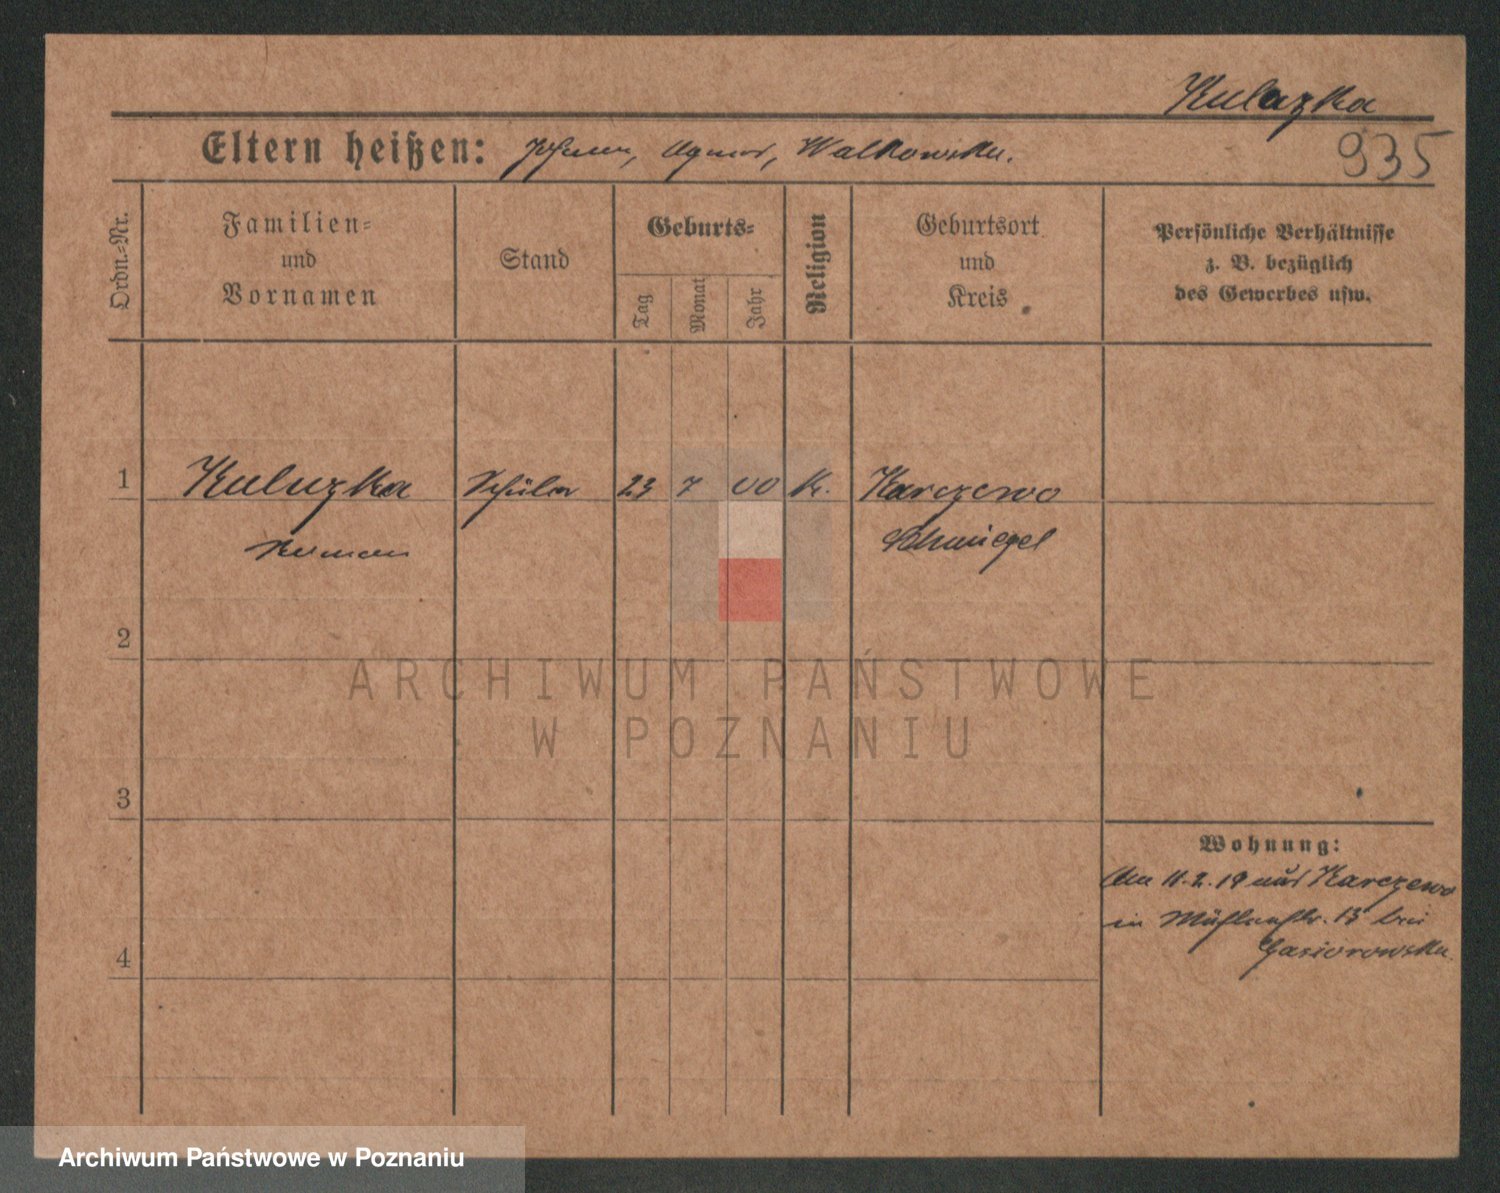 Kulazka
Eltern heißen: Johann, Agnes, Walkowska.
935
Ordn.=Nr.
Familien=
und
Vornamen
Stand
Geburts=
Tag
Monat
Jahr
Religion
Geburtsort
und
Kreis
Persönliche Verhältnisse
z. B. bezüglich
des Gewerbes usw.
1
Kuluzka
Schüler
23
7
00
K.
Karczewo
Roman
Schmiegel
2
ARCHIWUM PAŃSTWOWE
W POZNANIU
3
Wohnung:
Am 11.2.19 aus Karczewo
in Mühlenstr. 13 bei
Gasiorowska
4
Archiwum Państwowe w Poznaniu